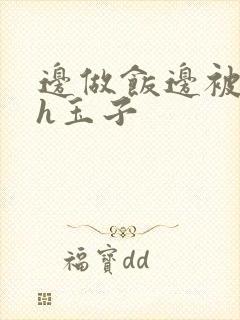 邊做飯邊被
h玉子
福寶dd